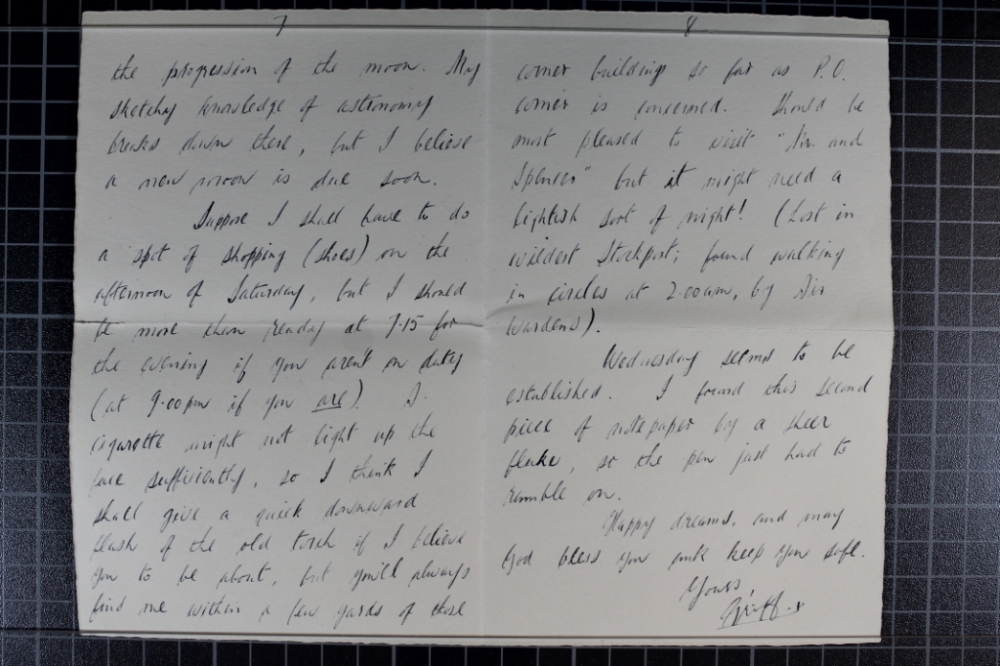 7
the progression of the moon. My
sketchy knowledge of astronomy
breaks down there, but I believe
a new moon is due soon.
Suppose I shall have to do
a spot of shopping (shoes) on the
afternoon of Saturday, but I should
be more than ready at 7.15 for
the evening if you aren't on duty
(at 9.00pm if you are). A
cigarette might not light up the
face sufficiently, so I think I
shall give a quick downward
flash of the old torch if I believe
you to be about, but you'll always
find me within a few yards of those
8
corner buildings so far as P.O.
corner is concerned. Should be
most pleased to visit "Mr. and
Spencer" but it might need a
lightish sort of night! (Lost in
wildest Stockport; found walking
in circles at 2.00am, by Air
Wardens).
Wednesday seems to be
established. I found this second
piece of notepaper by a sheer
fluke, so the pen just had to
ramble on.
Happy dreams, and may
God bless you and keep you safe.
Yours